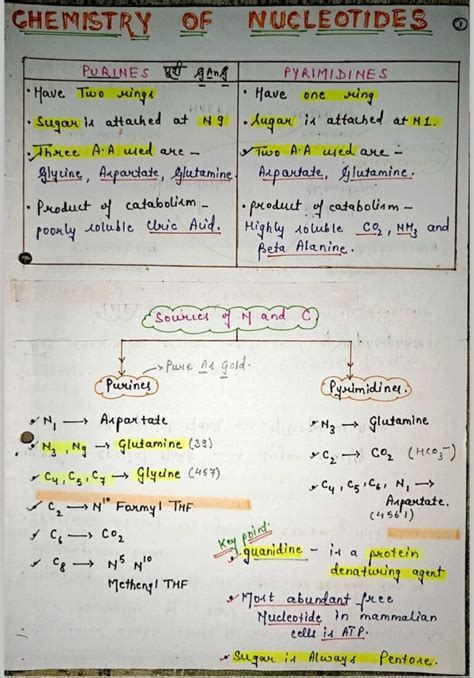 CHEMISTRY OF NUCLEOTIDES ①
PURINES पूरी
PYRIMIDINES
• Have Two rings
• Have one ring
• Sugar is attached at N9
• Sugar is attached at N1.
• Three A.A used are -
Glycine, Aspartate, Glutamine.
• Two A.A used are -
Aspartate, Glutamine.
• Product of catabolism -
poorly soluble Uric Acid.
• product of catabolism -
Highly soluble CO₂, NH₃ and
Beta Alanine.
Sources of N and C
Purines → Pure As Gold.
Pyrimidines.
N₁ → Aspartate
N₃, N₉ → Glutamine (39)
C₄, C₅, C₇ → Glycine (457)
C₂ → N¹⁰ Formyl THF
C₆ → CO₂
C₈ → N⁵ N¹⁰
Methenyl THF
N₃ → Glutamine
C₂ → CO₂ (HCO₃⁻)
C₄, C₅, C₆, N₁ →
Aspartate.
(4561)
Key point:
guanidine - is a protein
denaturing agent
Most abundant free
Nucleotide in mammalian
cells is ATP.
Sugar is Always Pentose.